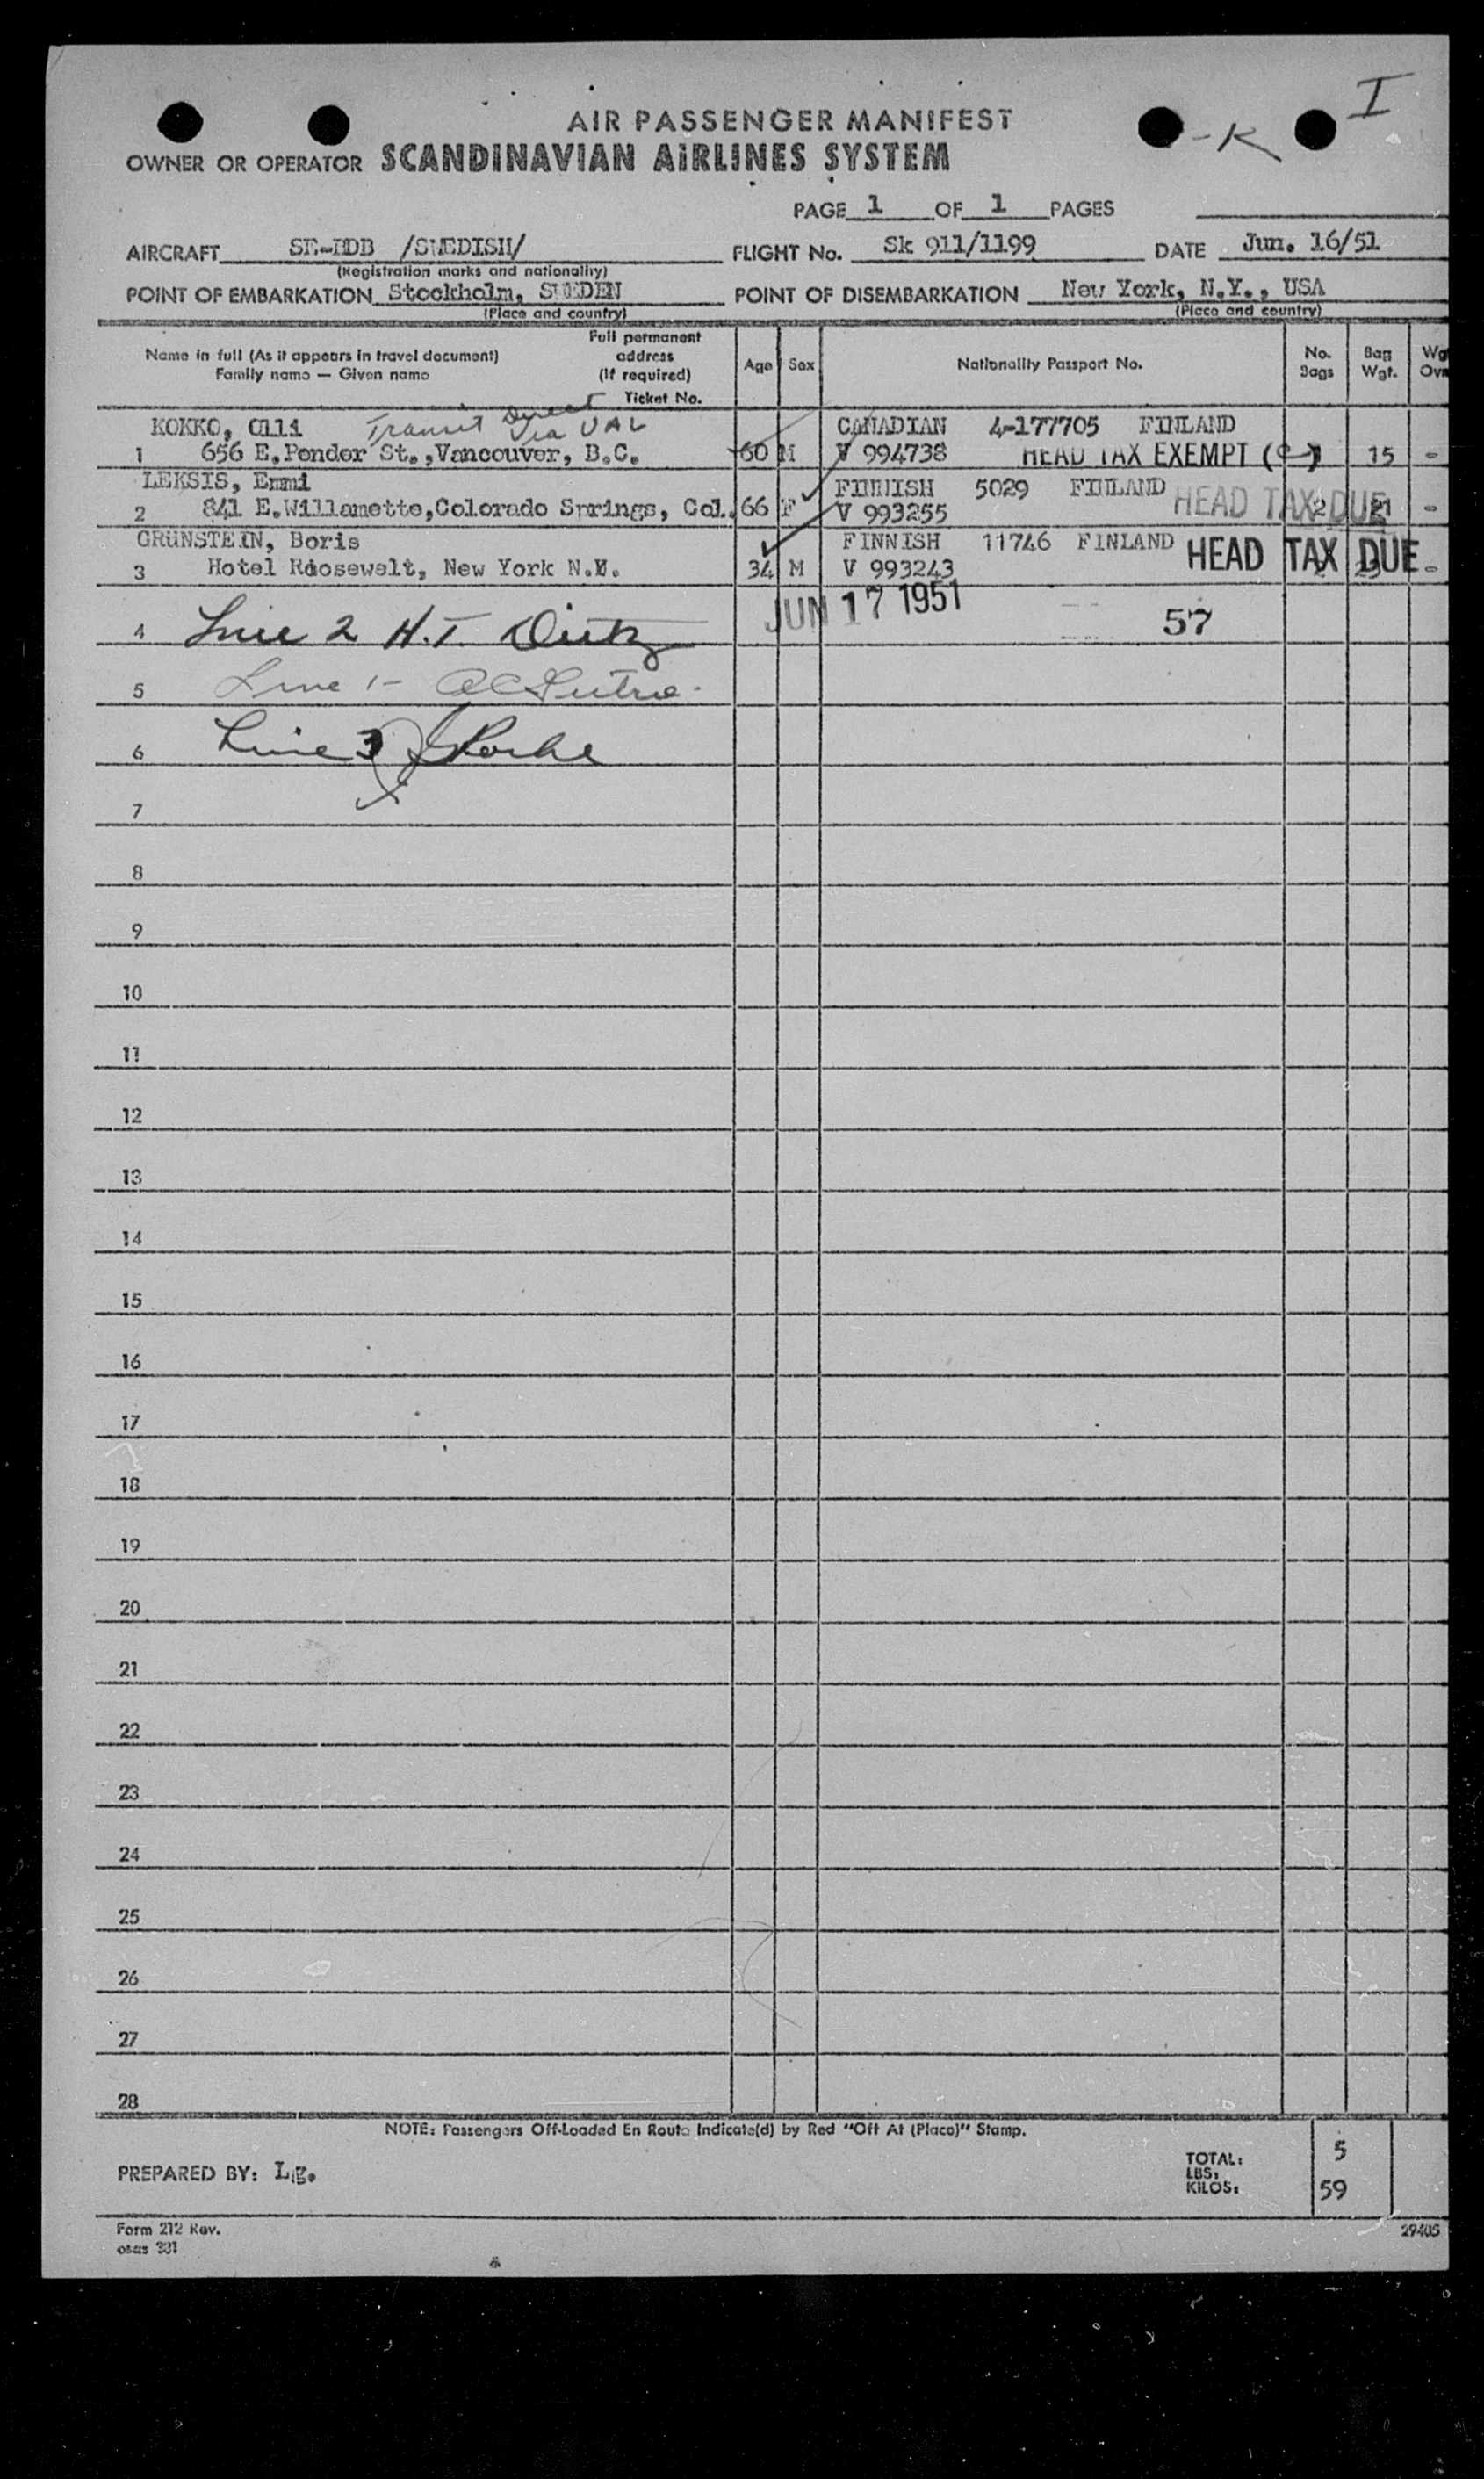 I
-K
AIR PASSENGER MANIFEST
OWNER OR OPERATOR SCANDINAVIAN AIRLINES SYSTEM
PAGE 1 OF 1 PAGES
AIRCRAFT /SWEDISH/ FLIGHT No. Sk 911/1199 DATE Jun. 16/51
(Registration marks and nationality)
POINT OF EMBARKATION Stockholm, SWEDEN POINT OF DISEMBARKATION New York, N.Y., USA
(Place and country) (Place and country)
Name in full (As it appears in travel document) Family name — Given name Full permanent address (If required) Ticket No. Age Sex Nationality Passport No. No. Bags Bag Wgt. Wg Ov
KOKKO, Olli Transit Direct Via UAL CANADIAN 4-177705 FINLAND
1 656 E.Pender St.,Vancouver, B.C. 60 M V 994738 HEAD TAX EXEMPT 15 -
LEKSIS, Emmi FINNISH 5029 FINLAND HEAD TAX DUE
2 841 E.Willamette,Colorado Springs, Col. 66 F V 993255 2 21 -
GRÜNSTEIN, Boris FINNISH 11746 FINLAND HEAD TAX DUE
3 Hotel Roosewelt, New York N.Y. 34 M V 993243 -
JUN 17 1951
4 Line 2 H.T. 57
5 Line 1-
6 Line 3
7
8
9
10
11
12
13
14
15
16
17
18
19
20
21
22
23
24
25
26
27
28
NOTE: Passengers Off-Loaded En Route Indicate(d) by Red "Off At (Place)" Stamp.
PREPARED BY: Lg. TOTAL: 5
LBS:
KILOS: 59
Form 212 Rev. 29405
osas 331